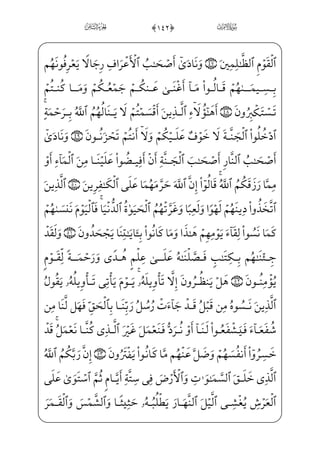 الجزء الثامن ﴿١٤٢﴾ سورة الأعراف
ٱلْقَوْمِ ٱلظَّٰلِمِينَ ۝ وَنَادَىٰٓ أَصْحَٰبُ ٱلْأَعْرَافِ رِجَالًا يَعْرِفُونَهُم
بِسِيمَىٰهُمْ قَالُوا۟ مَآ أَغْنَىٰ عَنكُمْ جَمْعُكُمْ وَمَا كُنتُمْ
تَسْتَكْبِرُونَ ۝ أَهَٰٓؤُلَآءِ ٱلَّذِينَ أَقْسَمْتُمْ لَا يَنَالُهُمُ ٱللَّهُ بِرَحْمَةٍ
ٱدْخُلُوا۟ ٱلْجَنَّةَ لَا خَوْفٌ عَلَيْكُمْ وَلَآ أَنتُمْ تَحْزَنُونَ ۝ وَنَادَىٰٓ
أَصْحَٰبُ ٱلنَّارِ أَصْحَٰبَ ٱلْجَنَّةِ أَنْ أَفِيضُوا۟ عَلَيْنَا مِنَ ٱلْمَآءِ أَوْ
مِمَّا رَزَقَكُمُ ٱللَّهُ قَالُوٓا۟ إِنَّ ٱللَّهَ حَرَّمَهُمَا عَلَى ٱلْكَٰفِرِينَ ۝ ٱلَّذِينَ
ٱتَّخَذُوا۟ دِينَهُمْ لَهْوًا وَلَعِبًا وَغَرَّتْهُمُ ٱلْحَيَوٰةُ ٱلدُّنْيَا فَٱلْيَوْمَ نَنسَىٰهُمْ
كَمَا نَسُوا۟ لِقَآءَ يَوْمِهِمْ هَٰذَا وَمَا كَانُوا۟ بِـَٔايَٰتِنَا يَجْحَدُونَ ۝ وَلَقَدْ
جِئْنَٰهُم بِكِتَٰبٍ فَصَّلْنَٰهُ عَلَىٰ عِلْمٍ هُدًى وَرَحْمَةً لِّقَوْمٍ
يُؤْمِنُونَ ۝ هَلْ يَنظُرُونَ إِلَّا تَأْوِيلَهُۥ يَوْمَ يَأْتِى تَأْوِيلُهُۥ يَقُولُ
ٱلَّذِينَ نَسُوهُ مِن قَبْلُ قَدْ جَآءَتْ رُسُلُ رَبِّنَا بِٱلْحَقِّ فَهَل لَّنَا مِن
شُفَعَآءَ فَيَشْفَعُوا۟ لَنَآ أَوْ نُرَدُّ فَنَعْمَلَ غَيْرَ ٱلَّذِى كُنَّا نَعْمَلُ قَدْ
خَسِرُوٓا۟ أَنفُسَهُمْ وَضَلَّ عَنْهُم مَّا كَانُوا۟ يَفْتَرُونَ ۝ إِنَّ رَبَّكُمُ ٱللَّهُ
ٱلَّذِى خَلَقَ ٱلسَّمَٰوَٰتِ وَٱلْأَرْضَ فِى سِتَّةِ أَيَّامٍ ثُمَّ ٱسْتَوَىٰ عَلَى
ٱلْعَرْشِ يُغْشِى ٱلَّيْلَ ٱلنَّهَارَ يَطْلُبُهُۥ حَثِيثًا وَٱلشَّمْسَ وَٱلْقَمَرَ